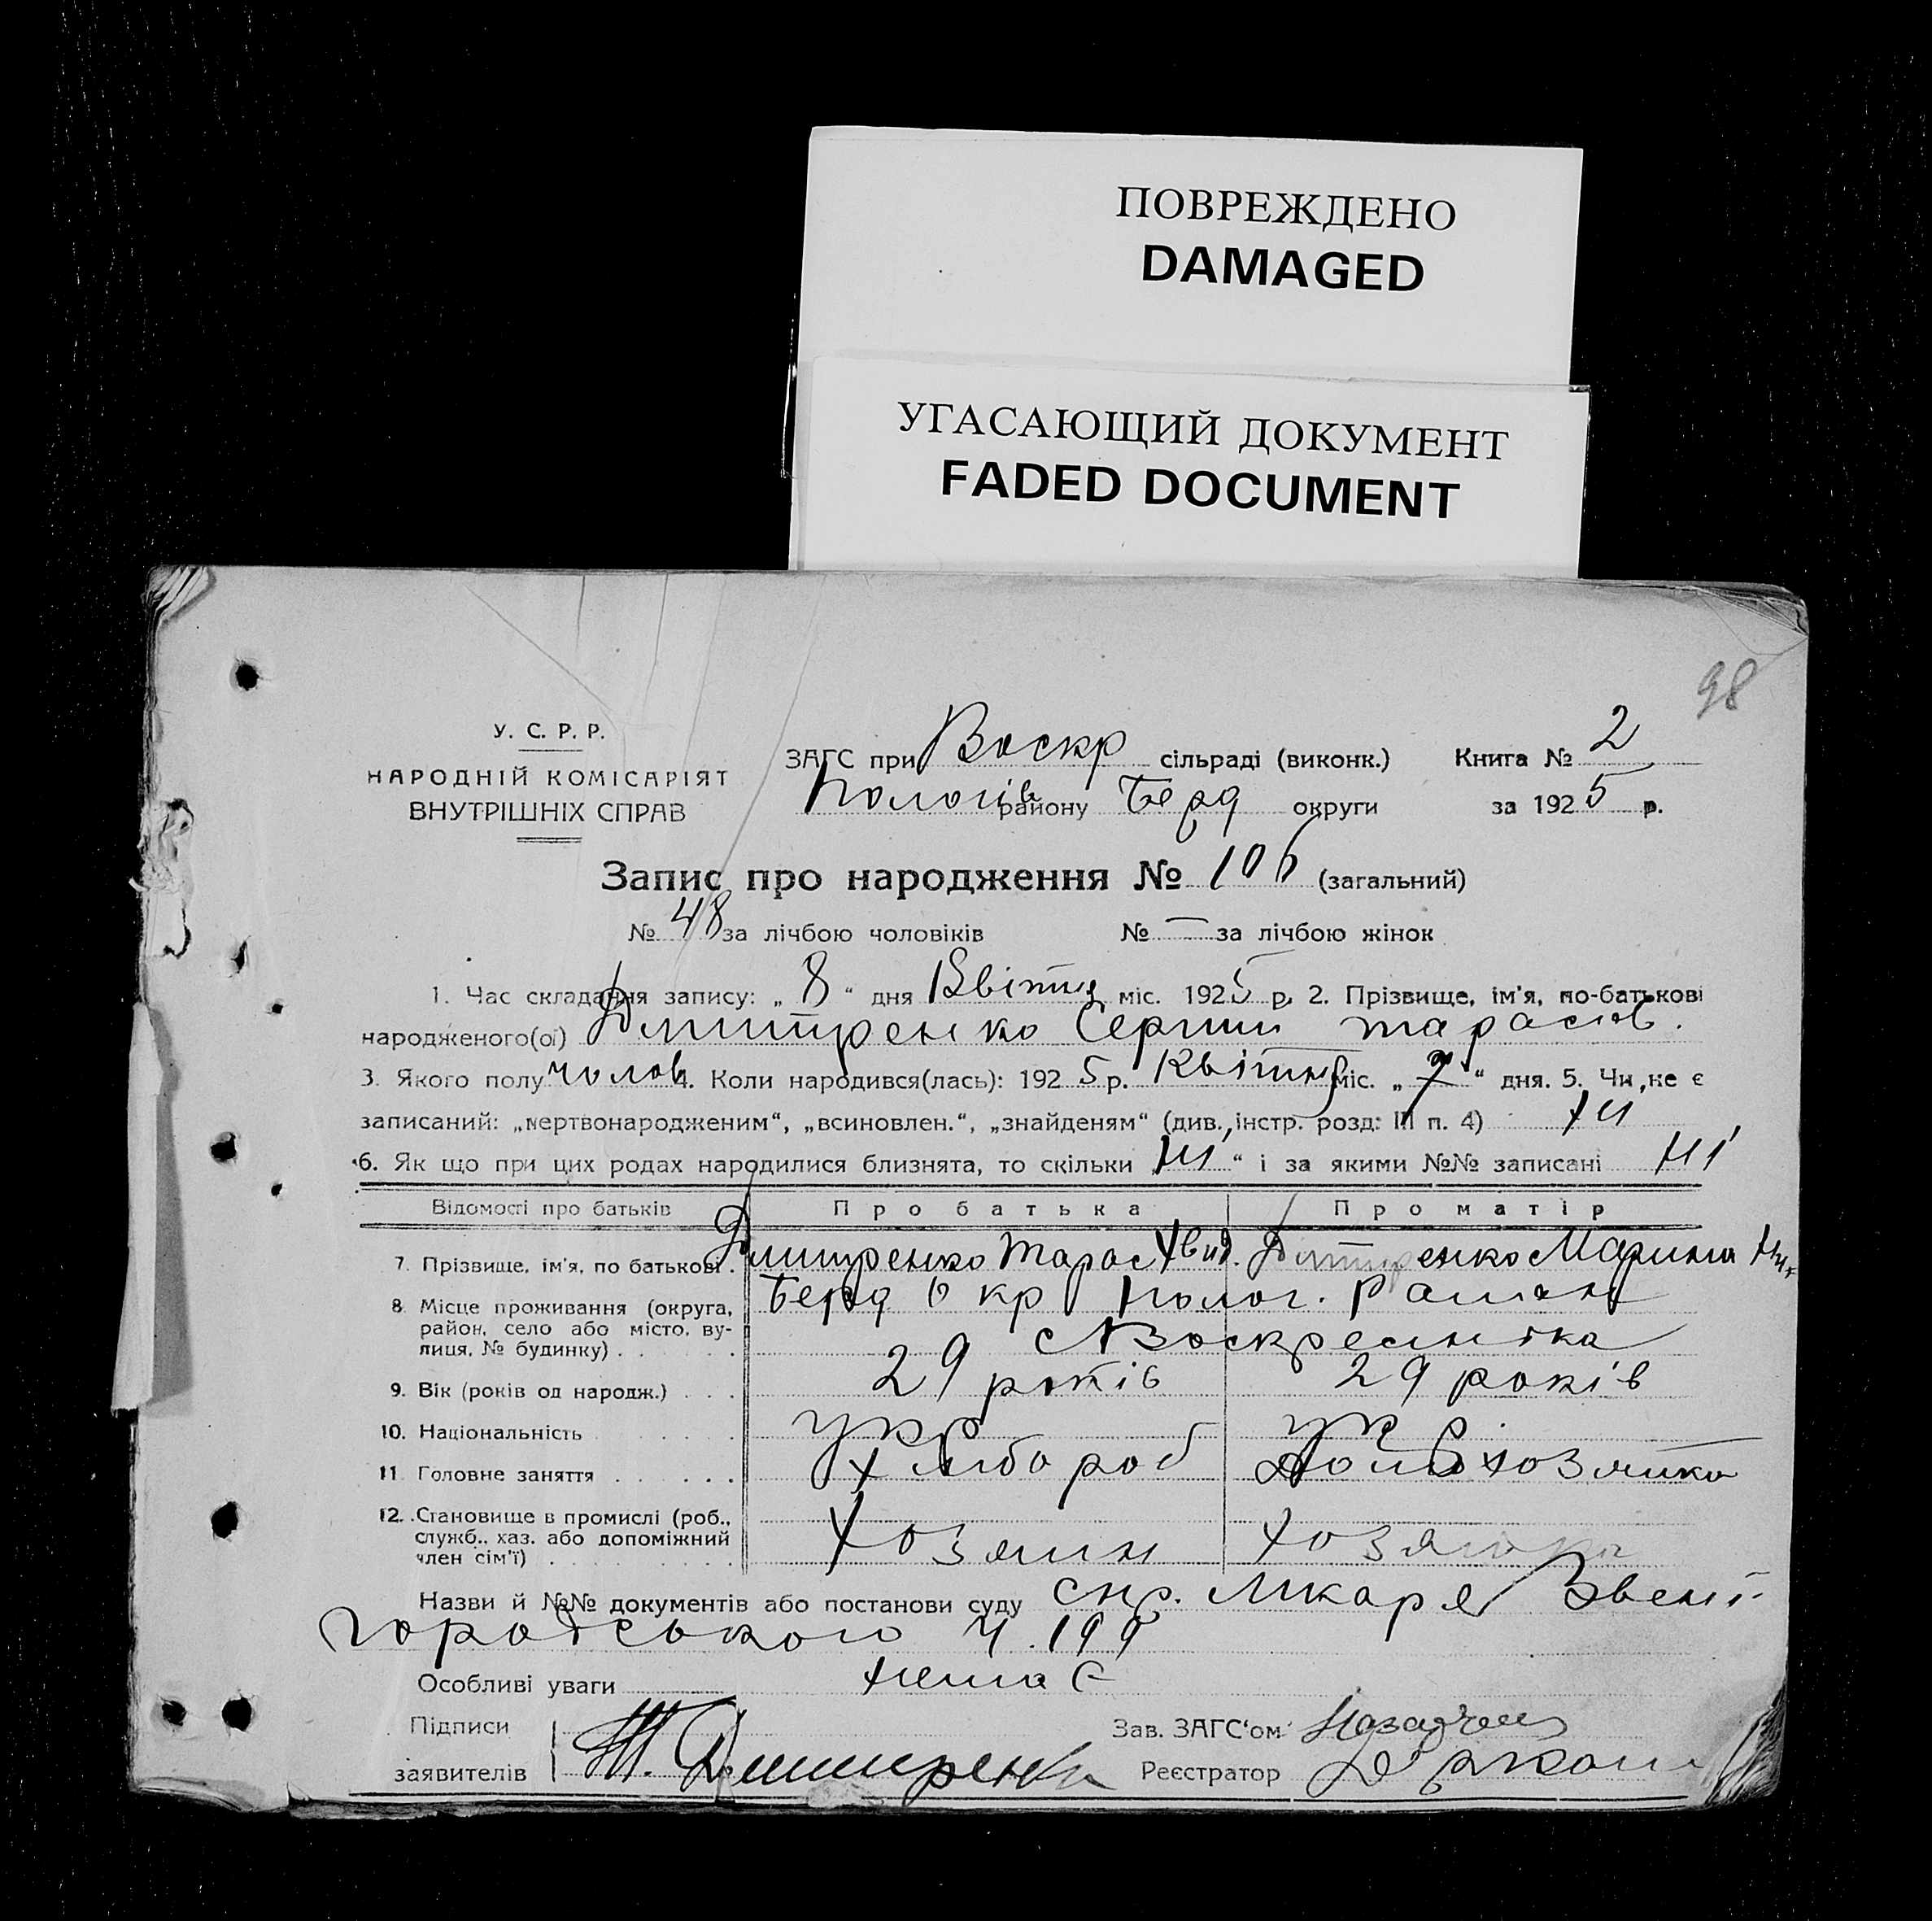 ПОВРЕЖДЕНО
DAMAGED
УГАСАЮЩИЙ ДОКУМЕНТ
FADED DOCUMENT
98
У. С. Р. Р.
НАРОДНІЙ КОМІСАРІЯТ
ВНУТРІШНІХ СПРАВ
ЗАГС при Воскр сільраді (виконк.) Книга № 2
Пологів району Берд округи за 1925 р.
Запис про народження № 106 (загальний)
№ 48 за лічбою чоловіків № — за лічбою жінок
1. Час складання запису: „8“ дня Квітня міс. 1925 р. 2. Прізвище, ім'я, по-батькові
народженого(ої) Дмитренко Сергий Тарасов.
3. Якого полу чолов 4. Коли народився(лась): 1925 р. Квітня міс. „7“ дня. 5. Чи не є
записаний: „мертвонародженим“, „всиновлен.“, „знайденям“ (див. інстр. розд: III п. 4) ні
6. Як що при цих родах народилися близнята, то скільки „ні“ і за якими №№ записані ні
Відомості про батьків Про батька Про матір
7. Прізвище, ім'я, по батькові. Дмитренко Тарас Дмитренко Марина
8. Місце проживання (округа, район, село або місто, вулиця, № будинку) Берд Окр Полог. Район
с Воскресенка
9. Вік (років од народж.) 29 років 29 років
10. Національність укр укр.
11. Головне заняття Хлібороб Домохозяйка
12. Становище в промислі (роб., служб., хаз. або допоміжний член сім'ї) Хозяин Хозяйка
Назви й №№ документів або постанови суду спр. лікаря Звени-
городського Ч. 199
Особливі уваги немає
Підписи Зав. ЗАГС'ом
заявителів Т. Дмитренко Реєстратор